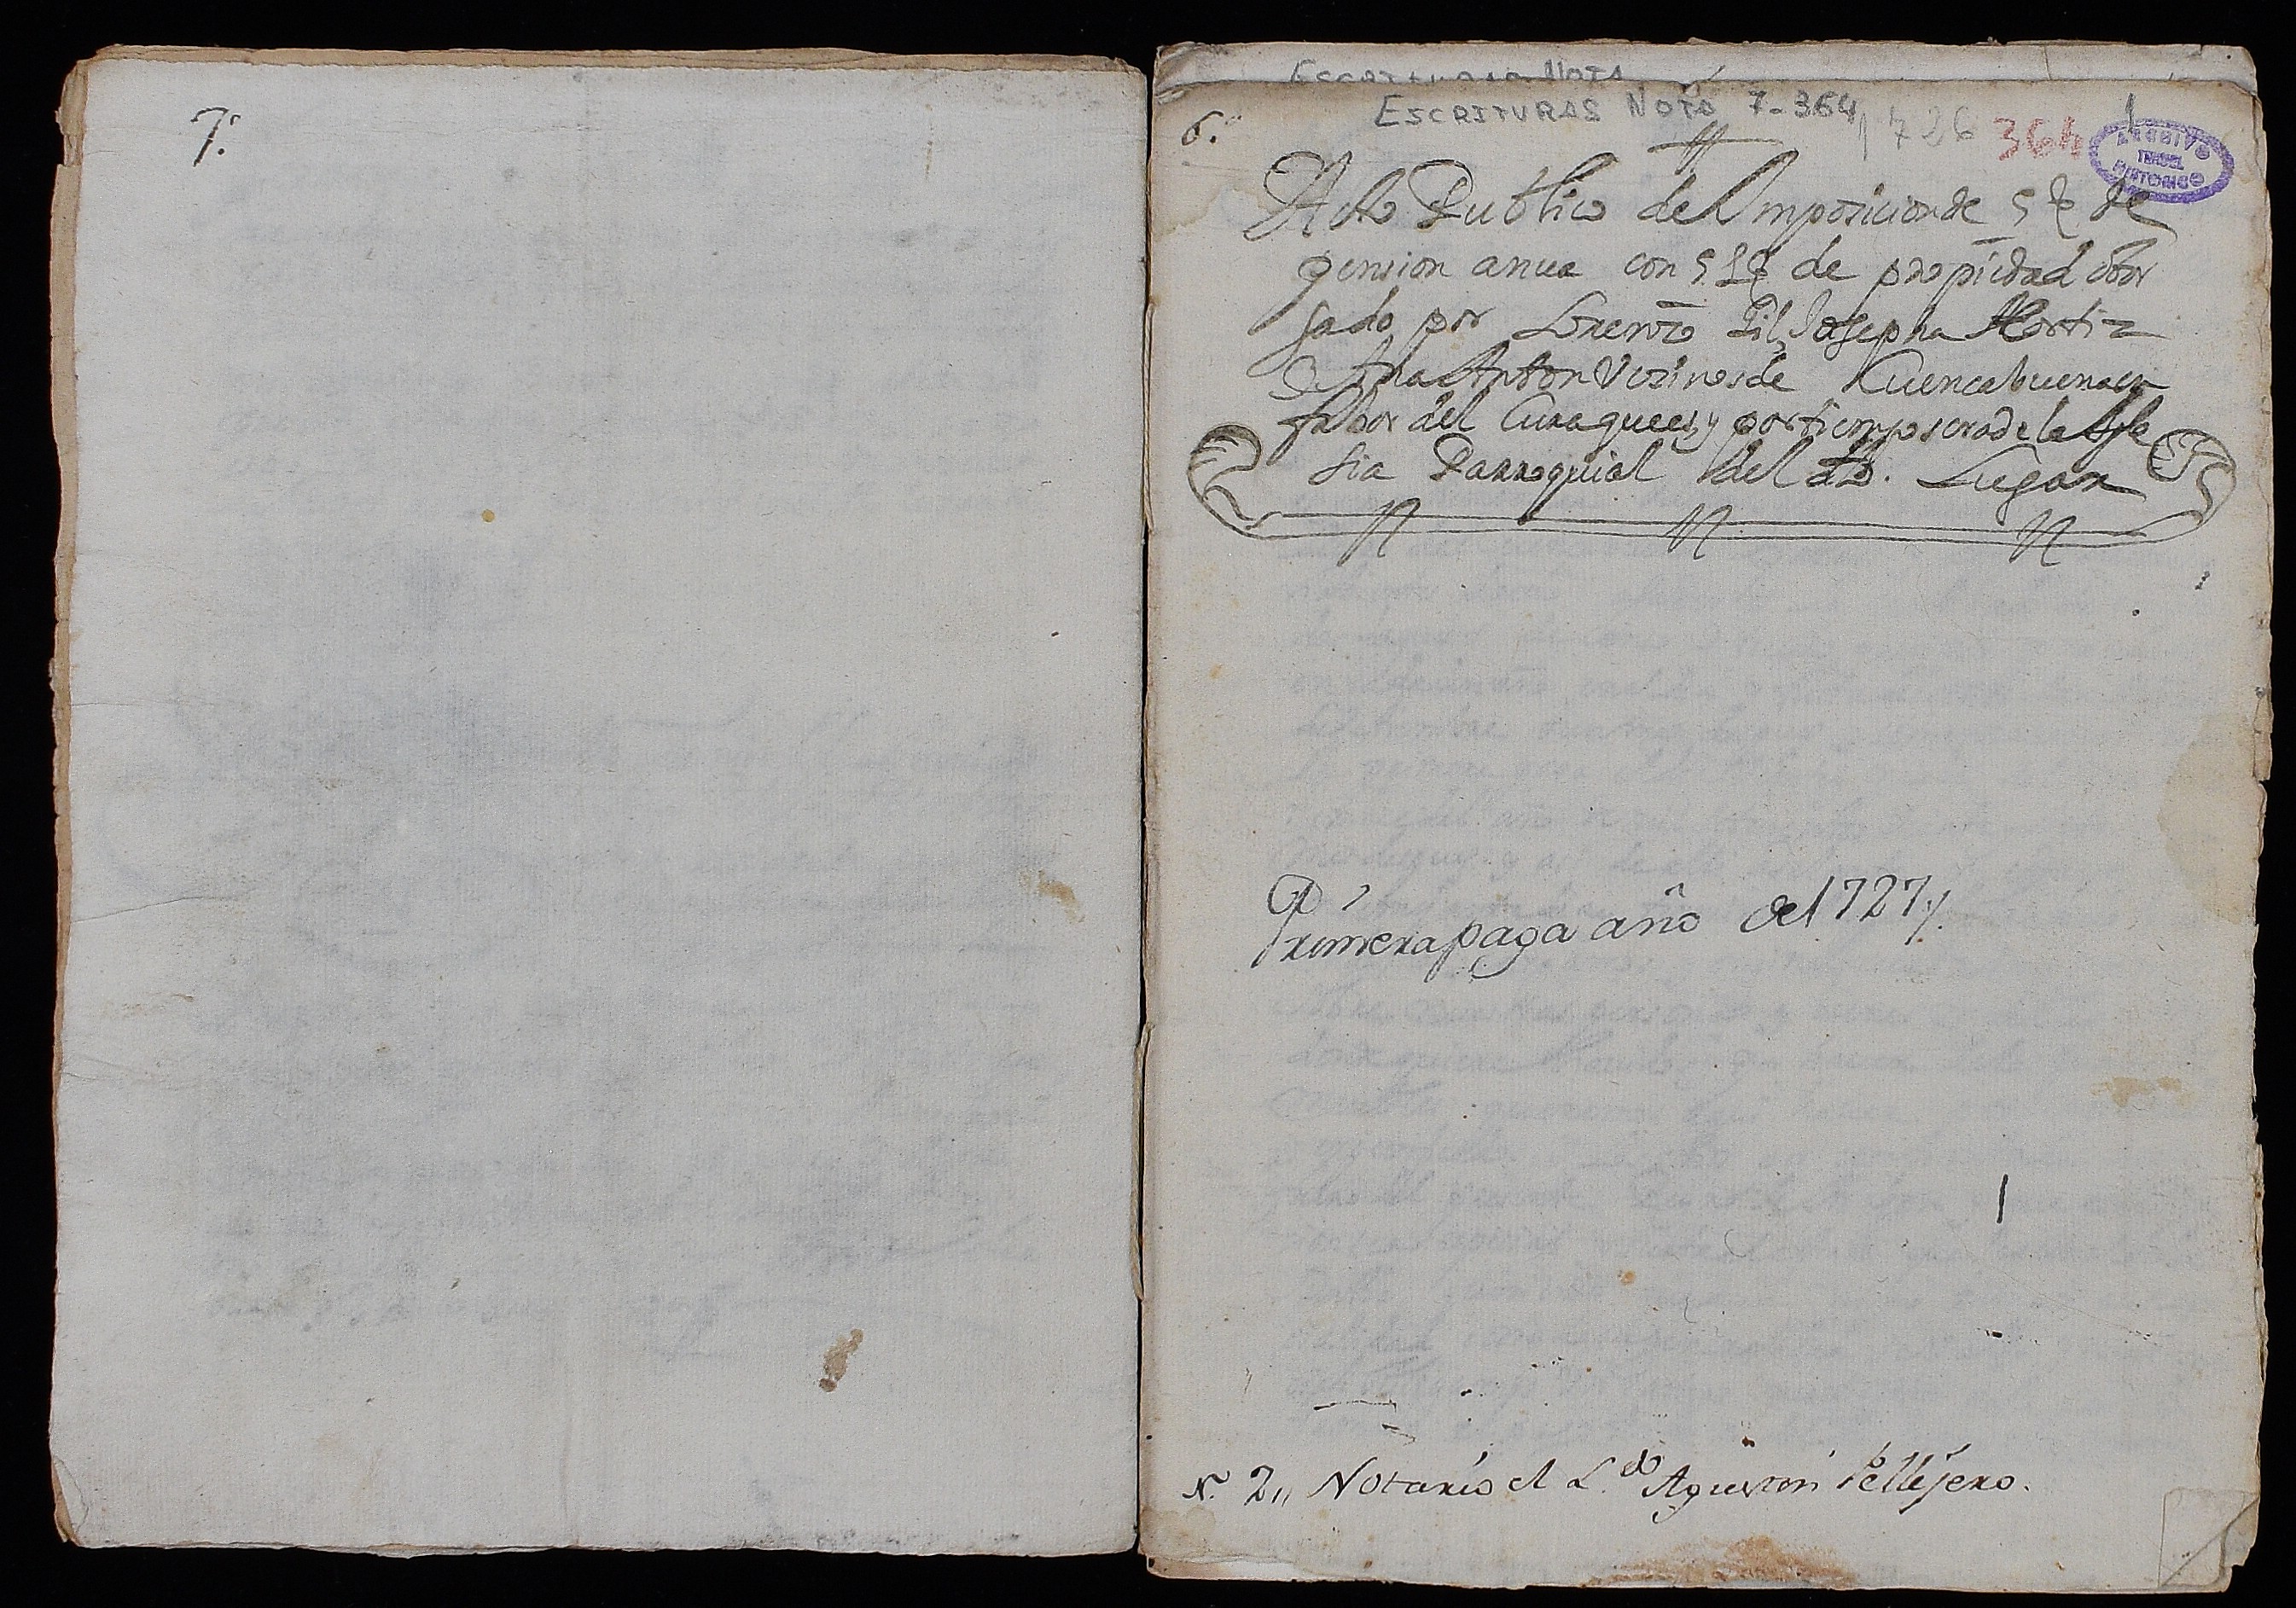 7.
ESCRITURAS NOTA 7-364
1726 364 1
ARCHIVO
TERUEL
HISTORICO
6.
Acto Publico de Imposicion de 5 de
pension anua con de propiedad otor
gado por Lorenzo Gil, Josepha Martin
Ana Anton Vezinos de Cuencabuena en
fabor del Cura que es, y por tiempo sera de la Igle
sia Parroquial del dho. Lugar
Primera paga año del 1727
N. 2,, Notario el L.do Agustin Pellejero.